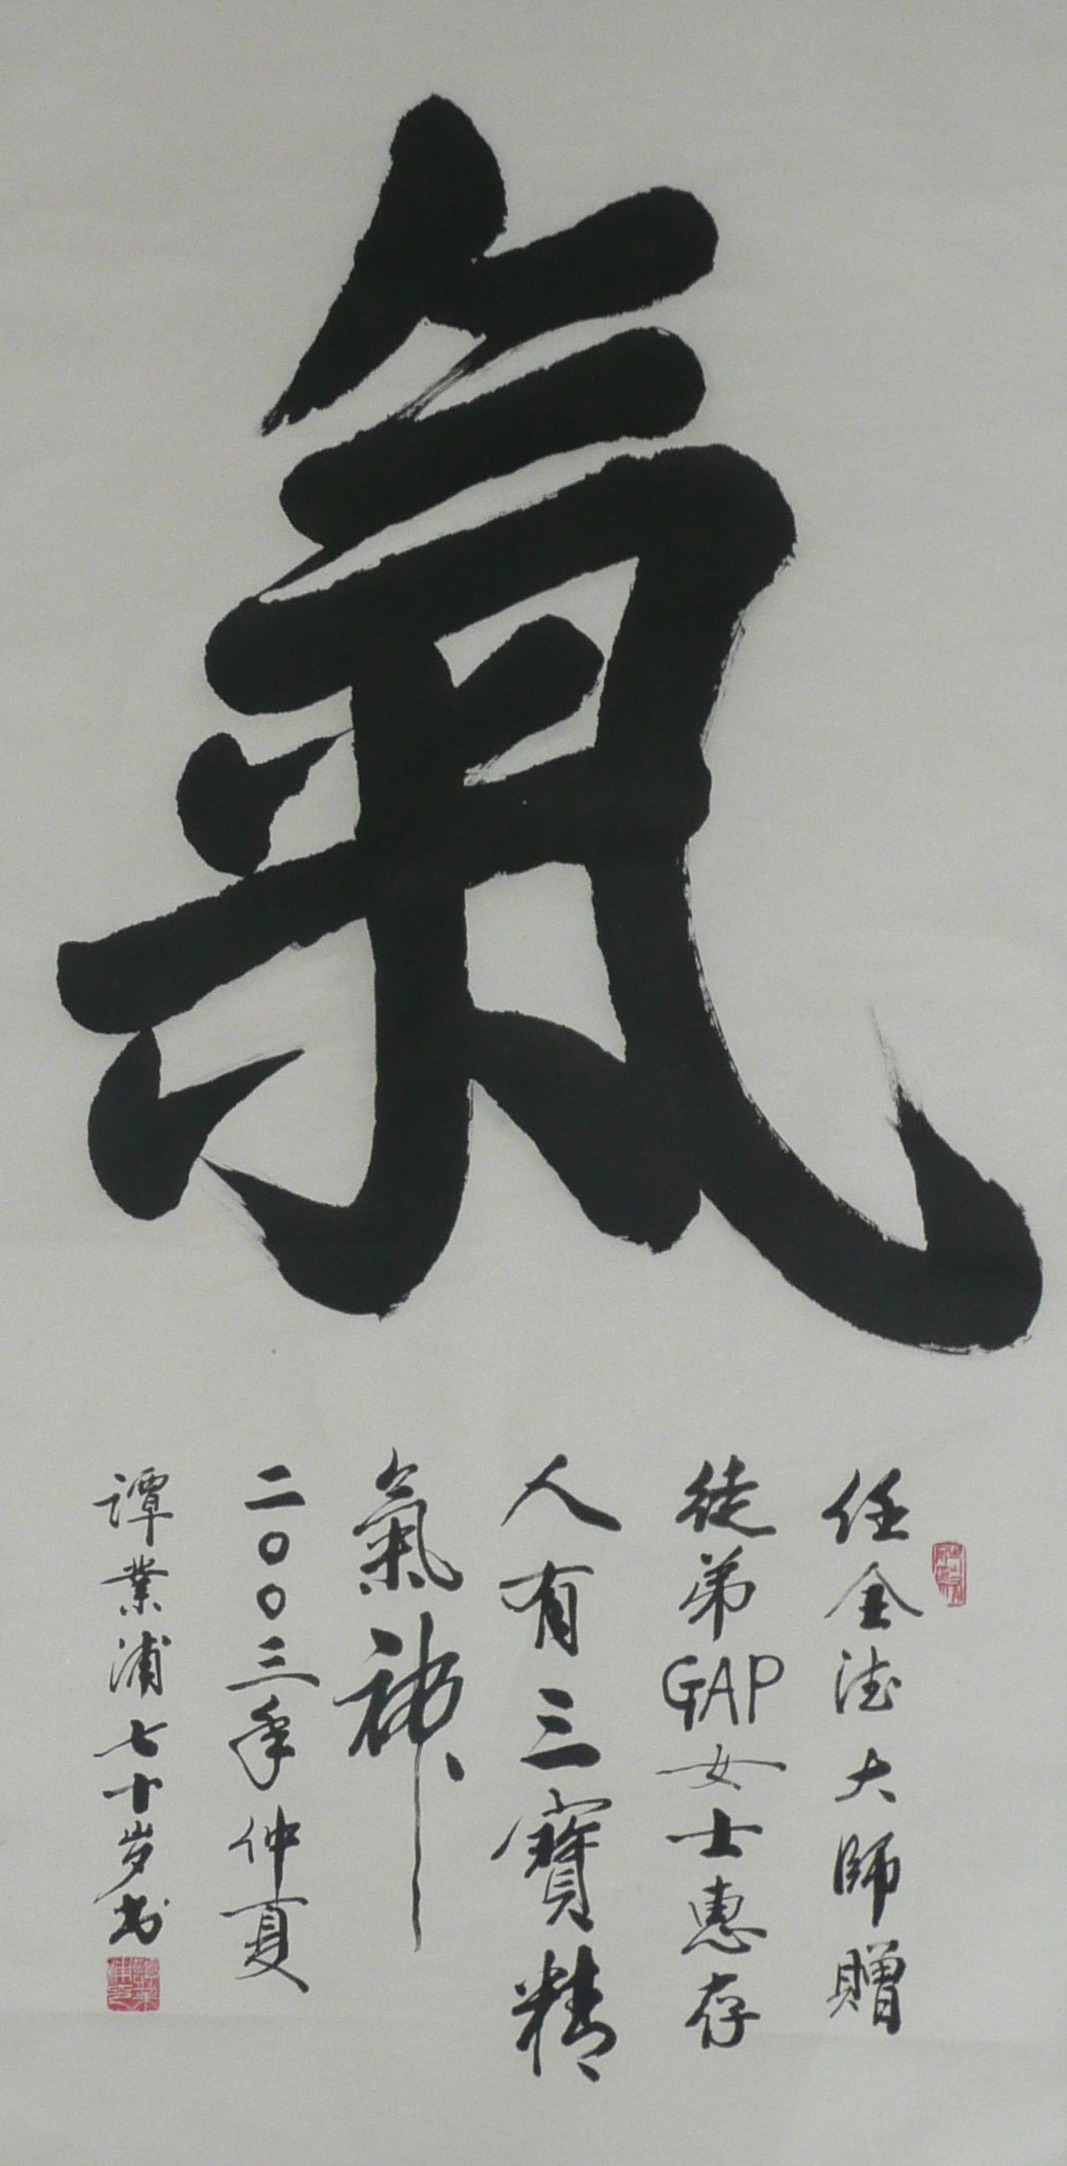 氣
任金法大師贈
徒弟GAP女士惠存
人有三寶精
氣神
二〇〇三年仲夏
譚業浦七十岁书